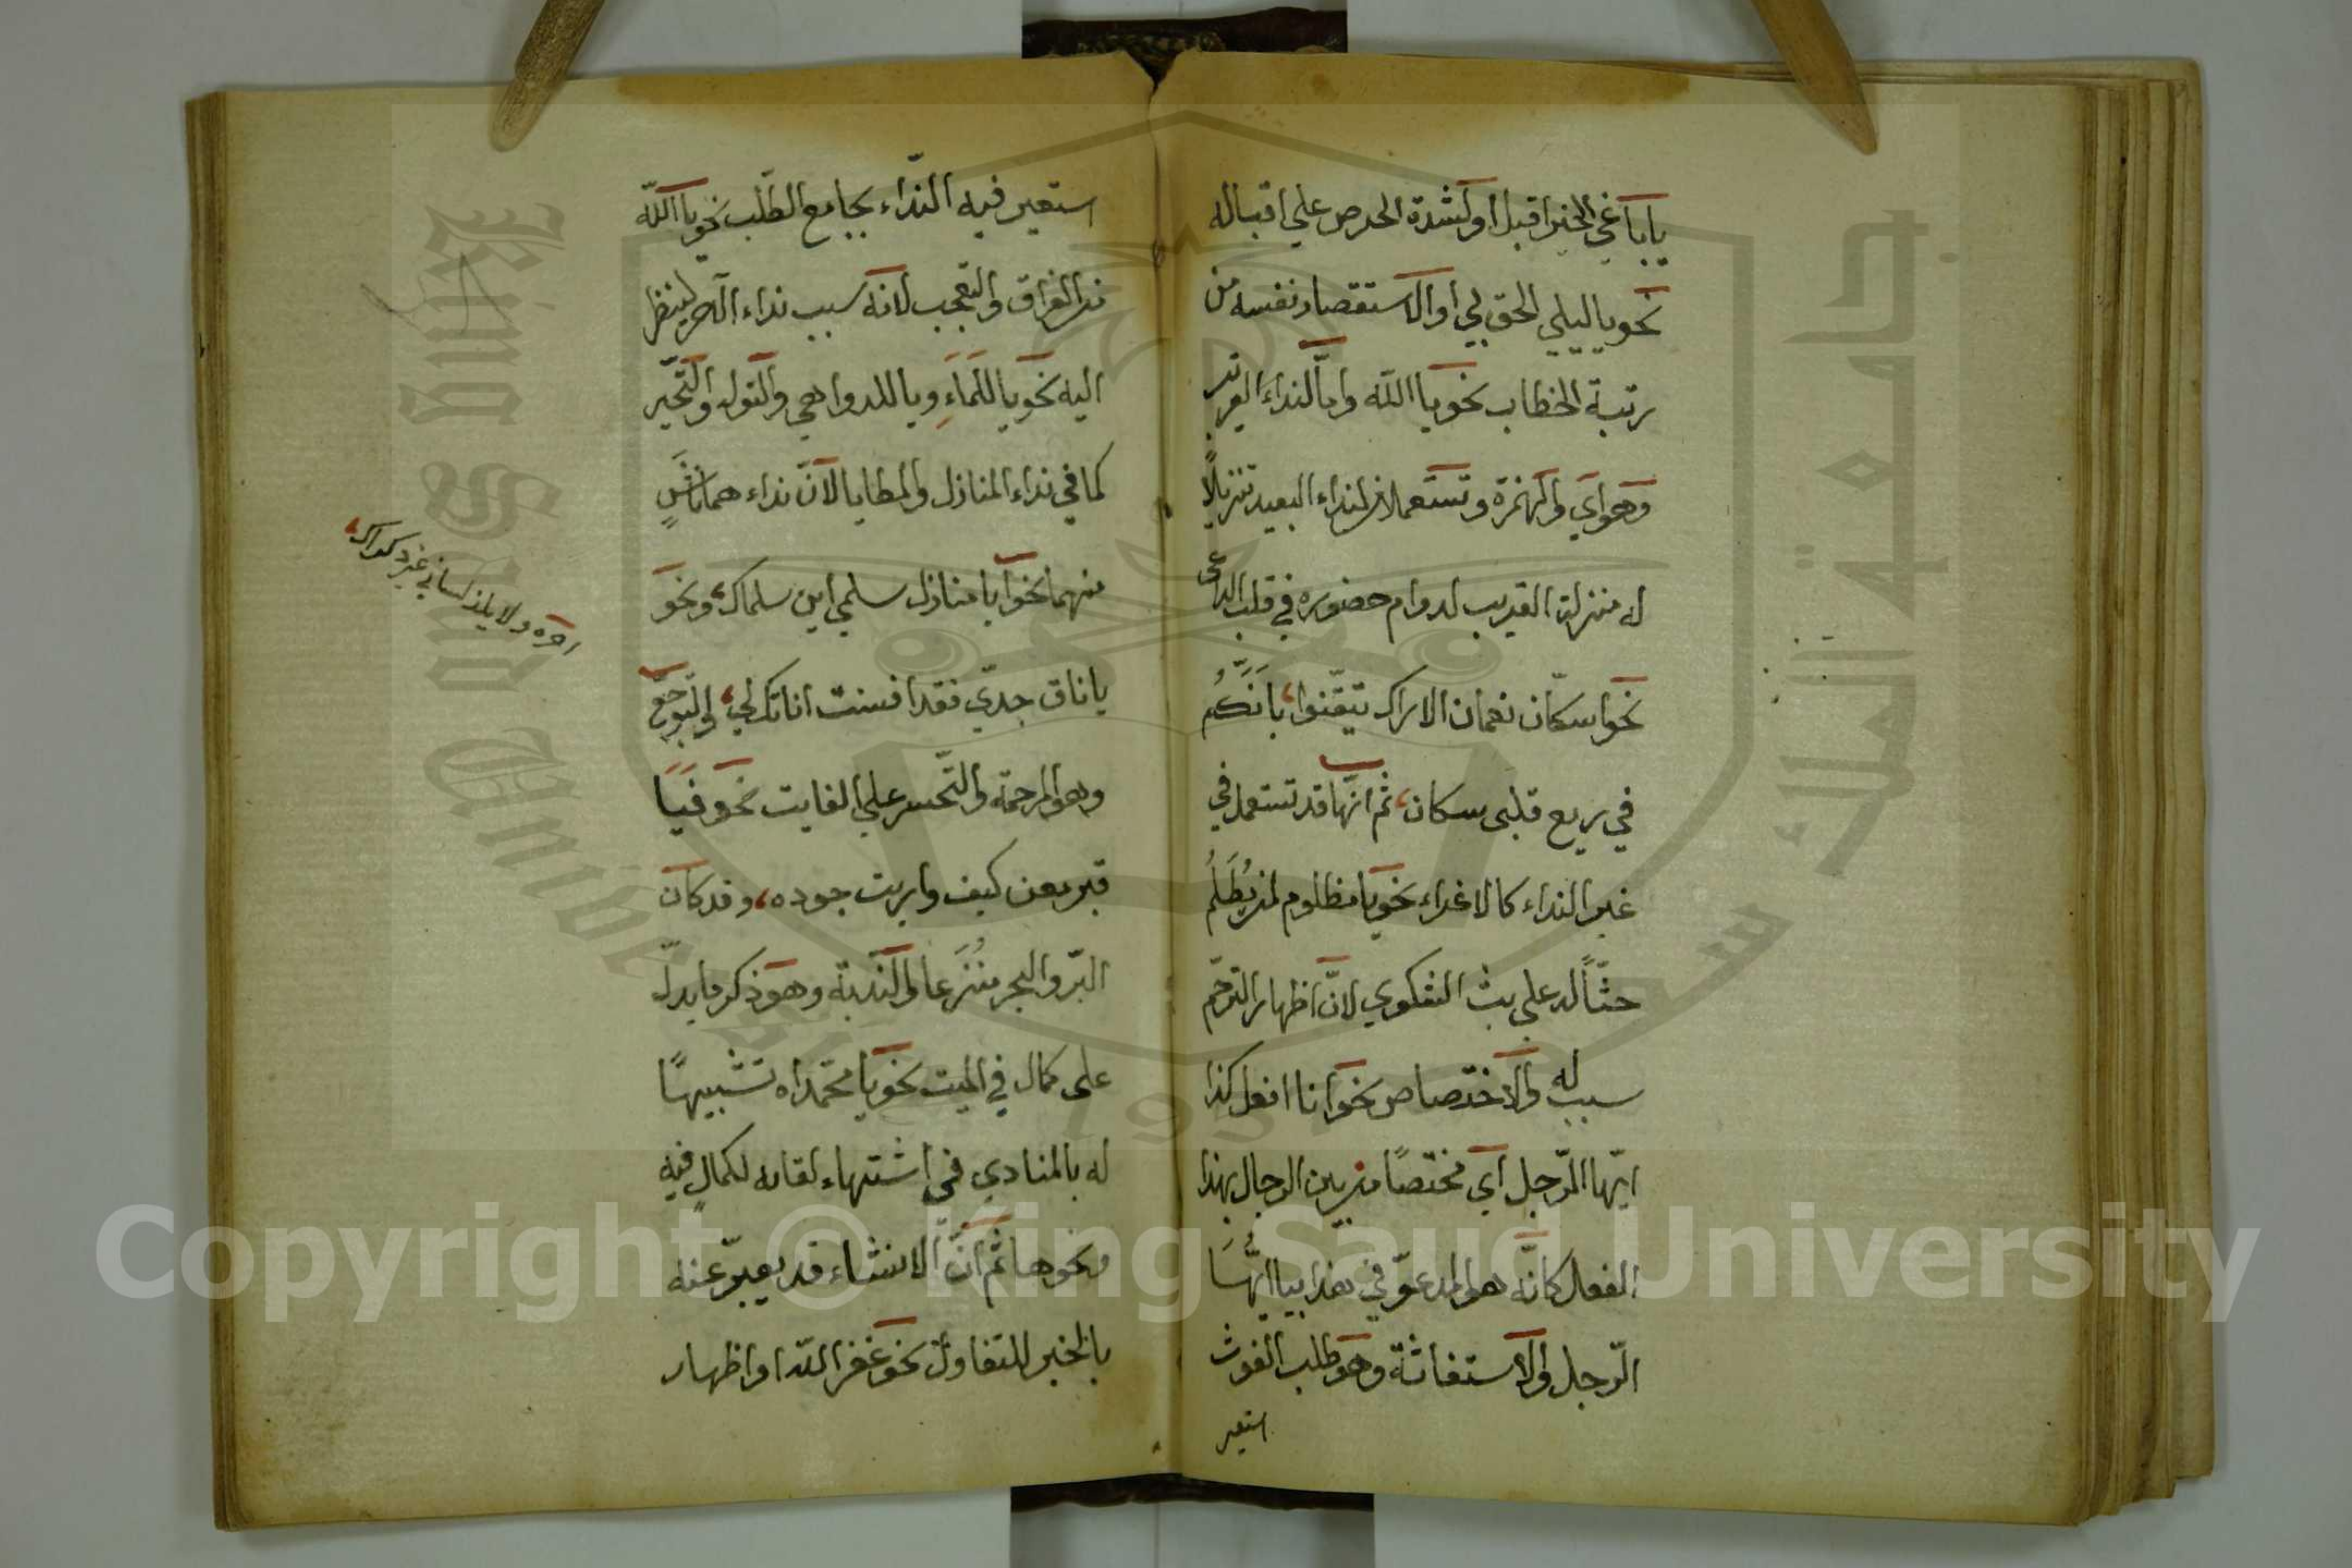 يا باغي الخير اقبل او لشدة الحرص علي اقباله
نحو يا ليلي الحق بي او الاستقصار نفسه من
رتبة الخطاب نحو يا الله واما لنداء القريب
وهو اي والهمزة وتستعملان لنداء البعيد تنزيلًا
له منزلة القريب لدوام حضوره في قلب الداعي
نحو اسكّان نعمان الاراك تيقّنوا، بأنّكُم
في ربع قلبى سكان، ثم انّها قد تستعمل في
غير النداء كالاغراء نحو يا مظلوم لمن يُظَلمُ
حثّاً له على بث الشكوي لانّ اظهار الترحّم
سبب له والاختصاص نحو انا افعل كذا
ايّها الرّجل اي مختصًا من بين الرجال بهذا
الفعل كانّه هو المدعوّ في هذا بيا ايّهَا
الرّجل والاستغاثة وهو طلب الغوث
استعير
استعير فيه النّداء بجامع الطّلب نحو يا الله
من الفراق والتعجّب لانه سبب نداء الآخر لينظر
اليه نحو يا للمَاءِ ويا للدواهي والتوله والتّحيّر
كما في نداء المنازل والمطايا لانّ نداء هما ناشٍ
منهما نحو ايا منازل سلمي اين سلماك، ونحو
يا ناق جدّي فقد افنت اناتك لي، والتّوجّع
وهو المرحمة والتّحسر علي الفايت نحو فيَا
قبر معن كيف واريت جوده، وقد كان
البرّ والبحر مُتْرَعا والنّدبة وهو ذكر ما يدلّ
على كمال في الميت نحو يا محمّداه تشبيهًا
له بالمنادي في اشتهاء لقائه لكمالٍ فيه
ونحوها ثم انّ الانشاء قد يعبّر عنه
بالخبر للتفاول نحو غفر الله او اظهار
ولا يلذ لساني غير ذكراك،
Copyright © King Saud University
King Saud University
جامعة الملك سعود
1957